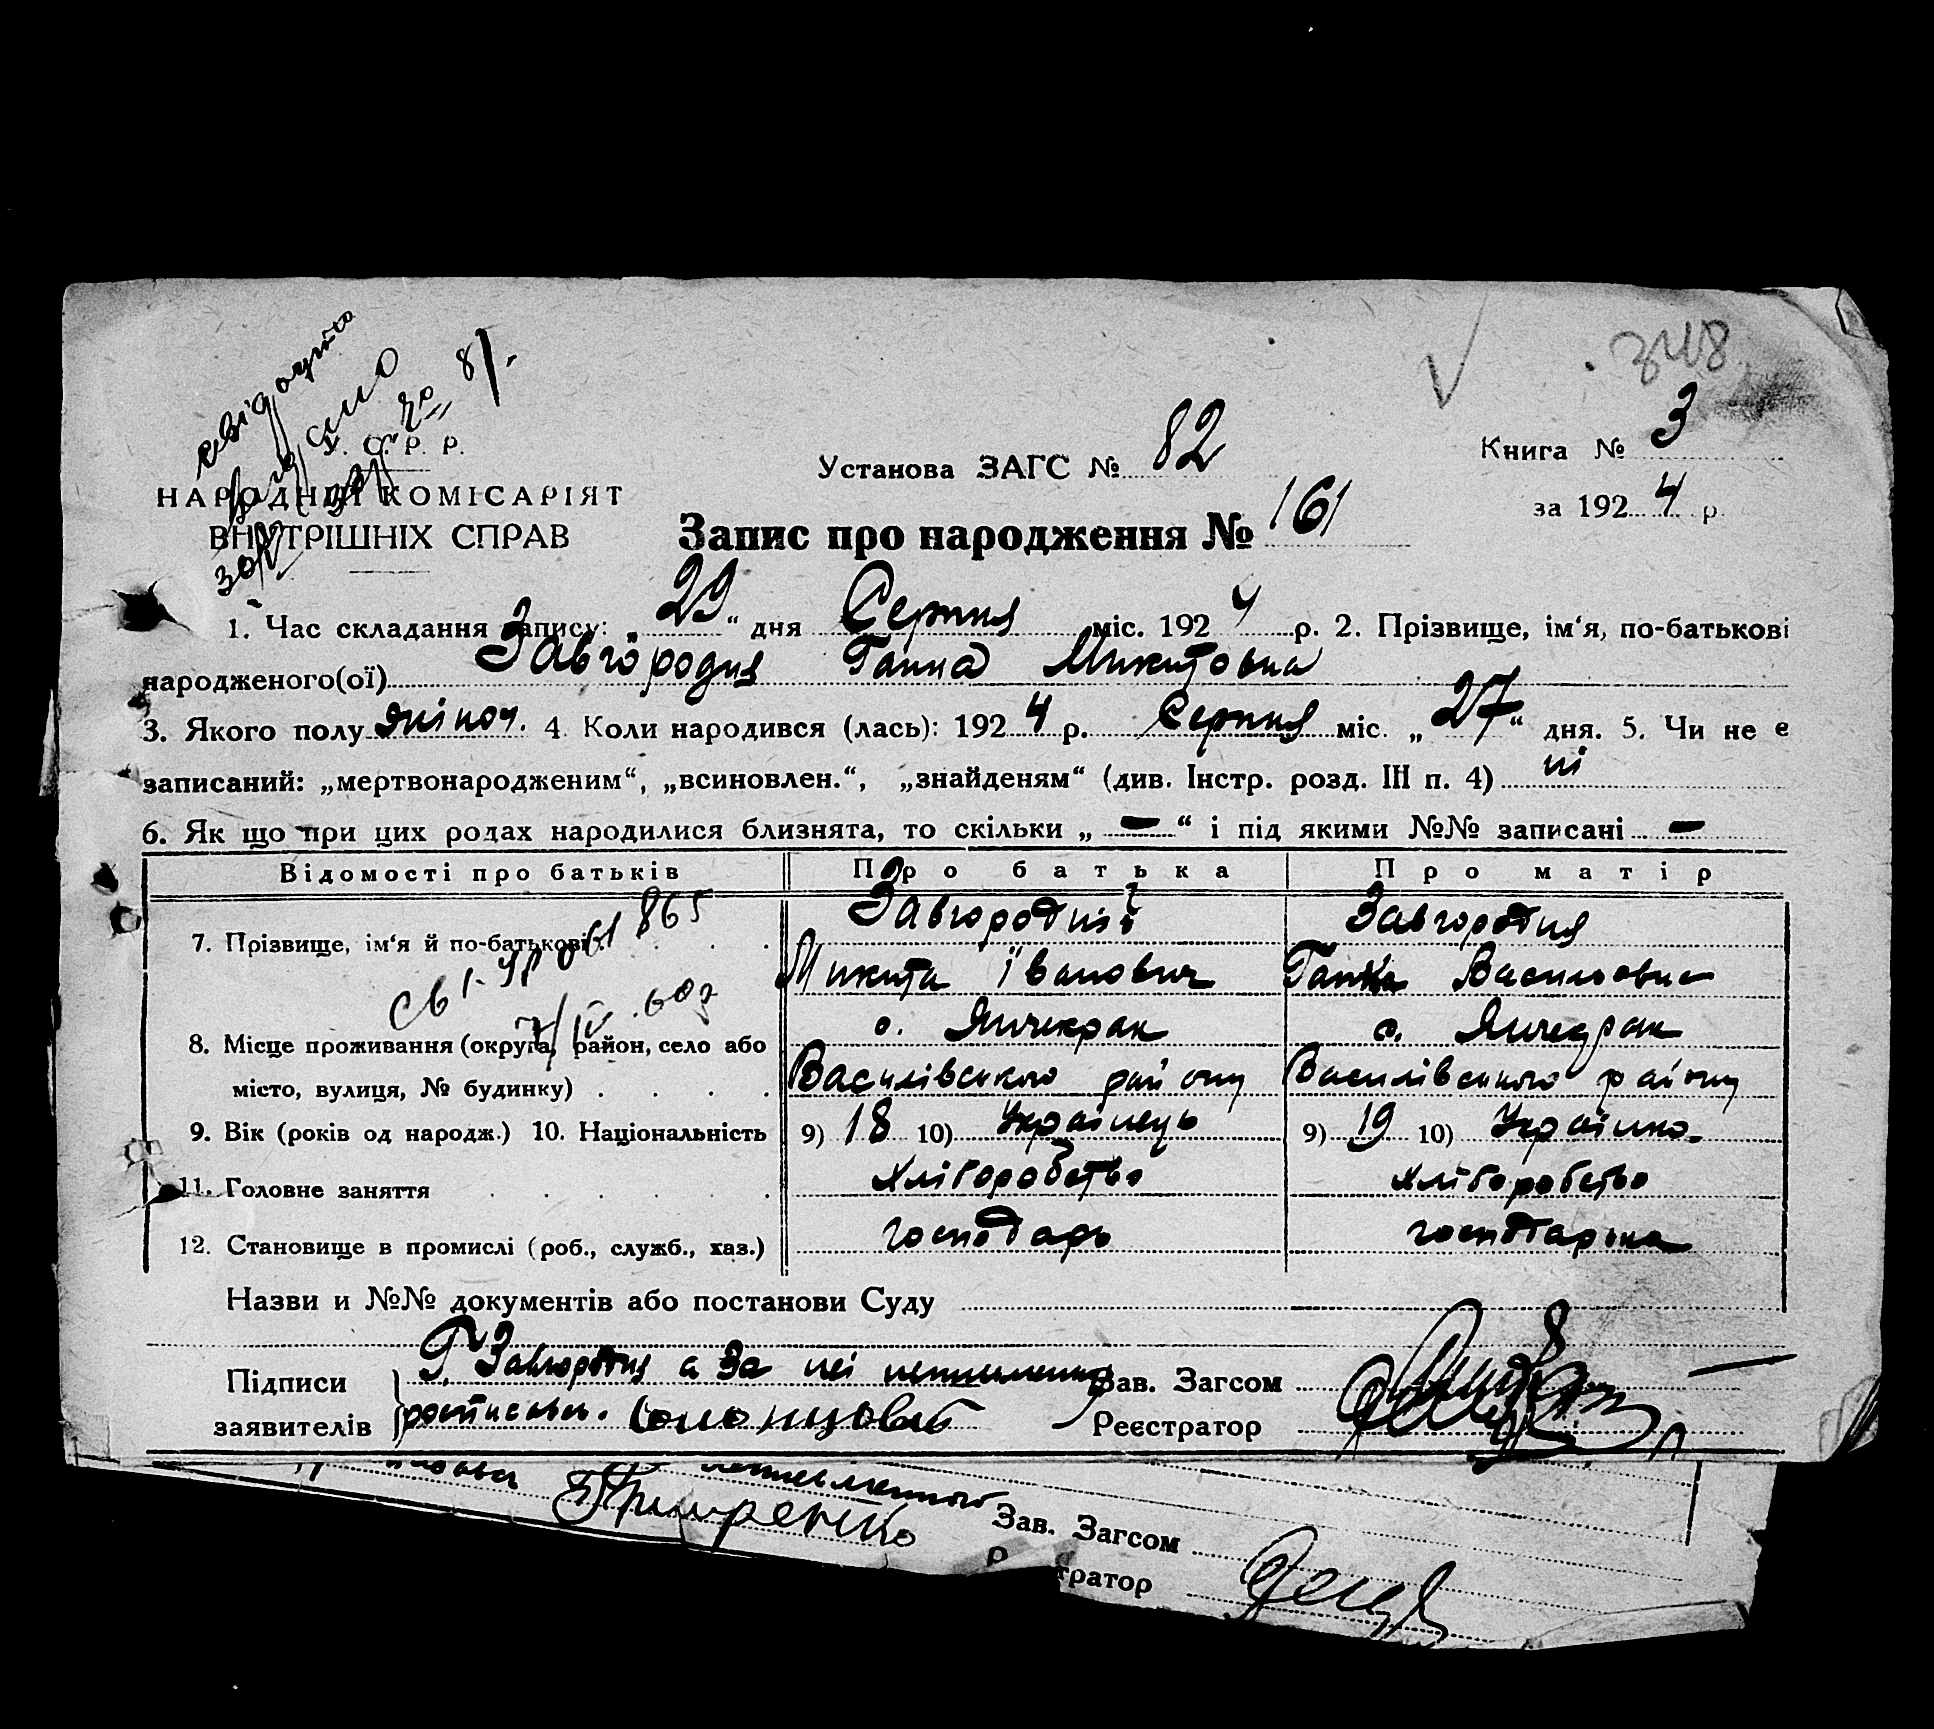 свідоцтво
348
У. С. Р. Р.
Установа ЗАГС № 82
Книга № 3
НАРОДНІЙ КОМІСАРІЯТ
за 1924 р.
ВНУТРІШНІХ СПРАВ
Запис про народження № 161
1. Час складання запису: „29“ дня Серпня міс. 1924 р. 2. Прізвище, ім‘я, по-батькові
народженого(ої) Завгородня Ганна Микитовна
3. Якого полу жіноч. 4. Коли народився (лась): 1924 р. Серпня міс. „27“ дня. 5. Чи не є
записаний: „мертвонародженим“, „всиновлен.“, „знайденям“ (див. Інстр. розд. III п. 4) ні
6. Як що при цих родах народилися близнята, то скільки „ — “ і під якими №№ записані —
Відомості про батьків Про батька Про матір
7. Прізвище, ім‘я й по-батькові Завгородній Завгородня
Микита Іванович Ганна Васильовна
с. Янчекрак с. Янчекрак
8. Місце проживання (округа, район, село або
місто, вулиця, № будинку) Василівського району Василівського району
9. Вік (років од народж.) 10. Національність 9) 18 10) Українець 9) 19 10) Українка
11. Головне заняття хліборобство хліборобство
12. Становище в промислі (роб., служб., хаз.) господарь господарька
Назви и №№ документів або постанови Суду
Підписи Г. Завгородня а за неі неписьменну Зав. Загсом
заявителів росписавсь. Реєстратор
Зав. Загсом
тратор